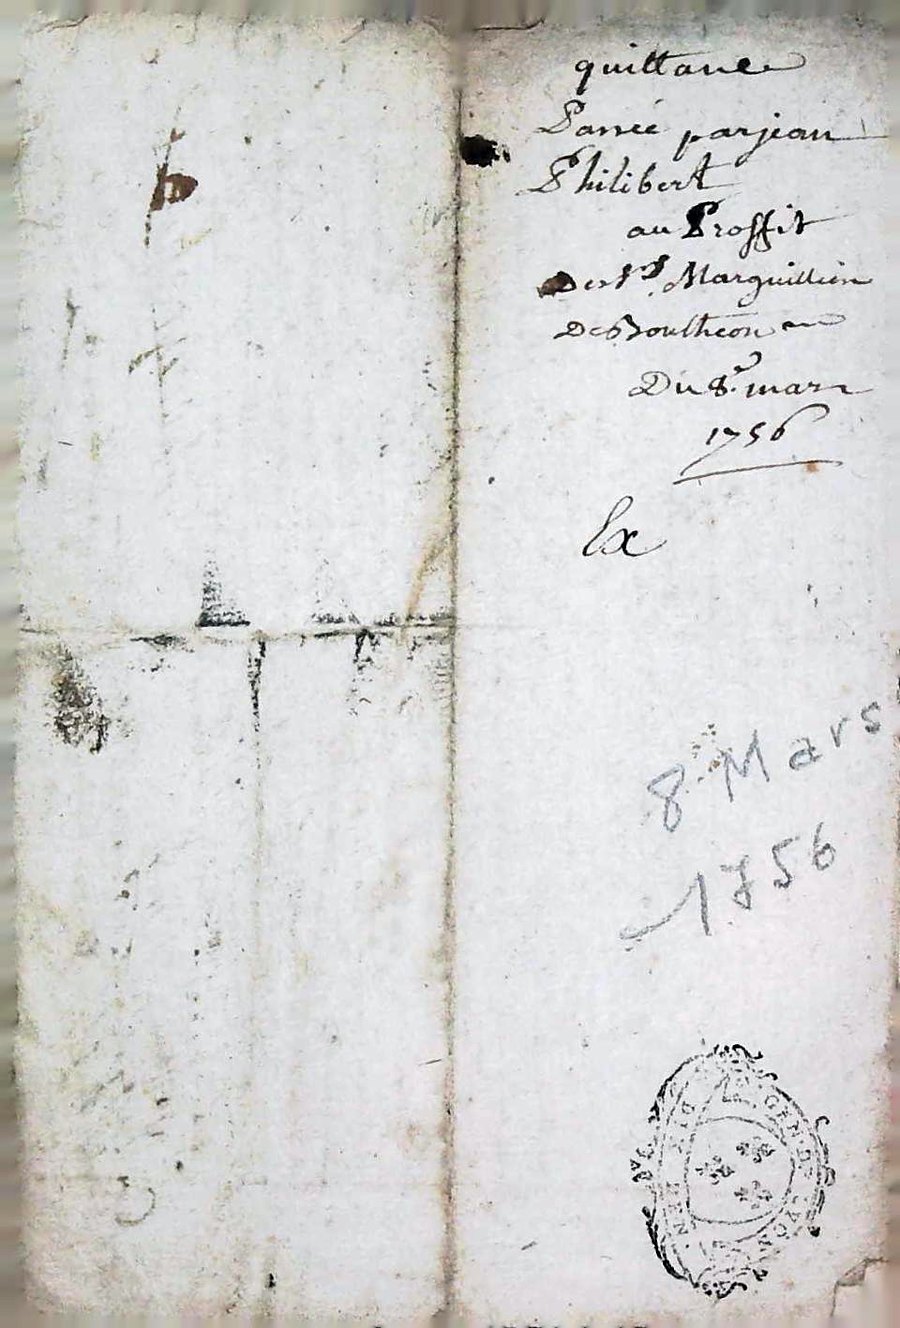 quittance
Passée par jean
Philibert
au Proffit
Des Srs Marguilliers
De Boutheon
Du 8e mars
1756
Ex
8 Mars
1756
GEN DE LYON
DIX DEN